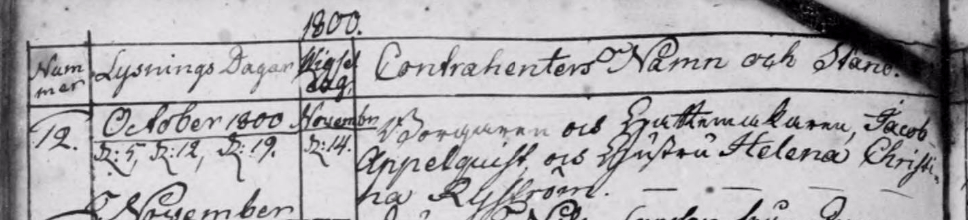 1800.
Nummer Lysnings Dagar Vigsel Dag. Contrahenters Namn och Stånd.
12. October 1800 Novembr. Borgaren och Hattemakaren, Jacob
D: 5, D: 12, D: 19. D: 14. Appelquist, och Hustru Helena Christi-
na Ryström.
November